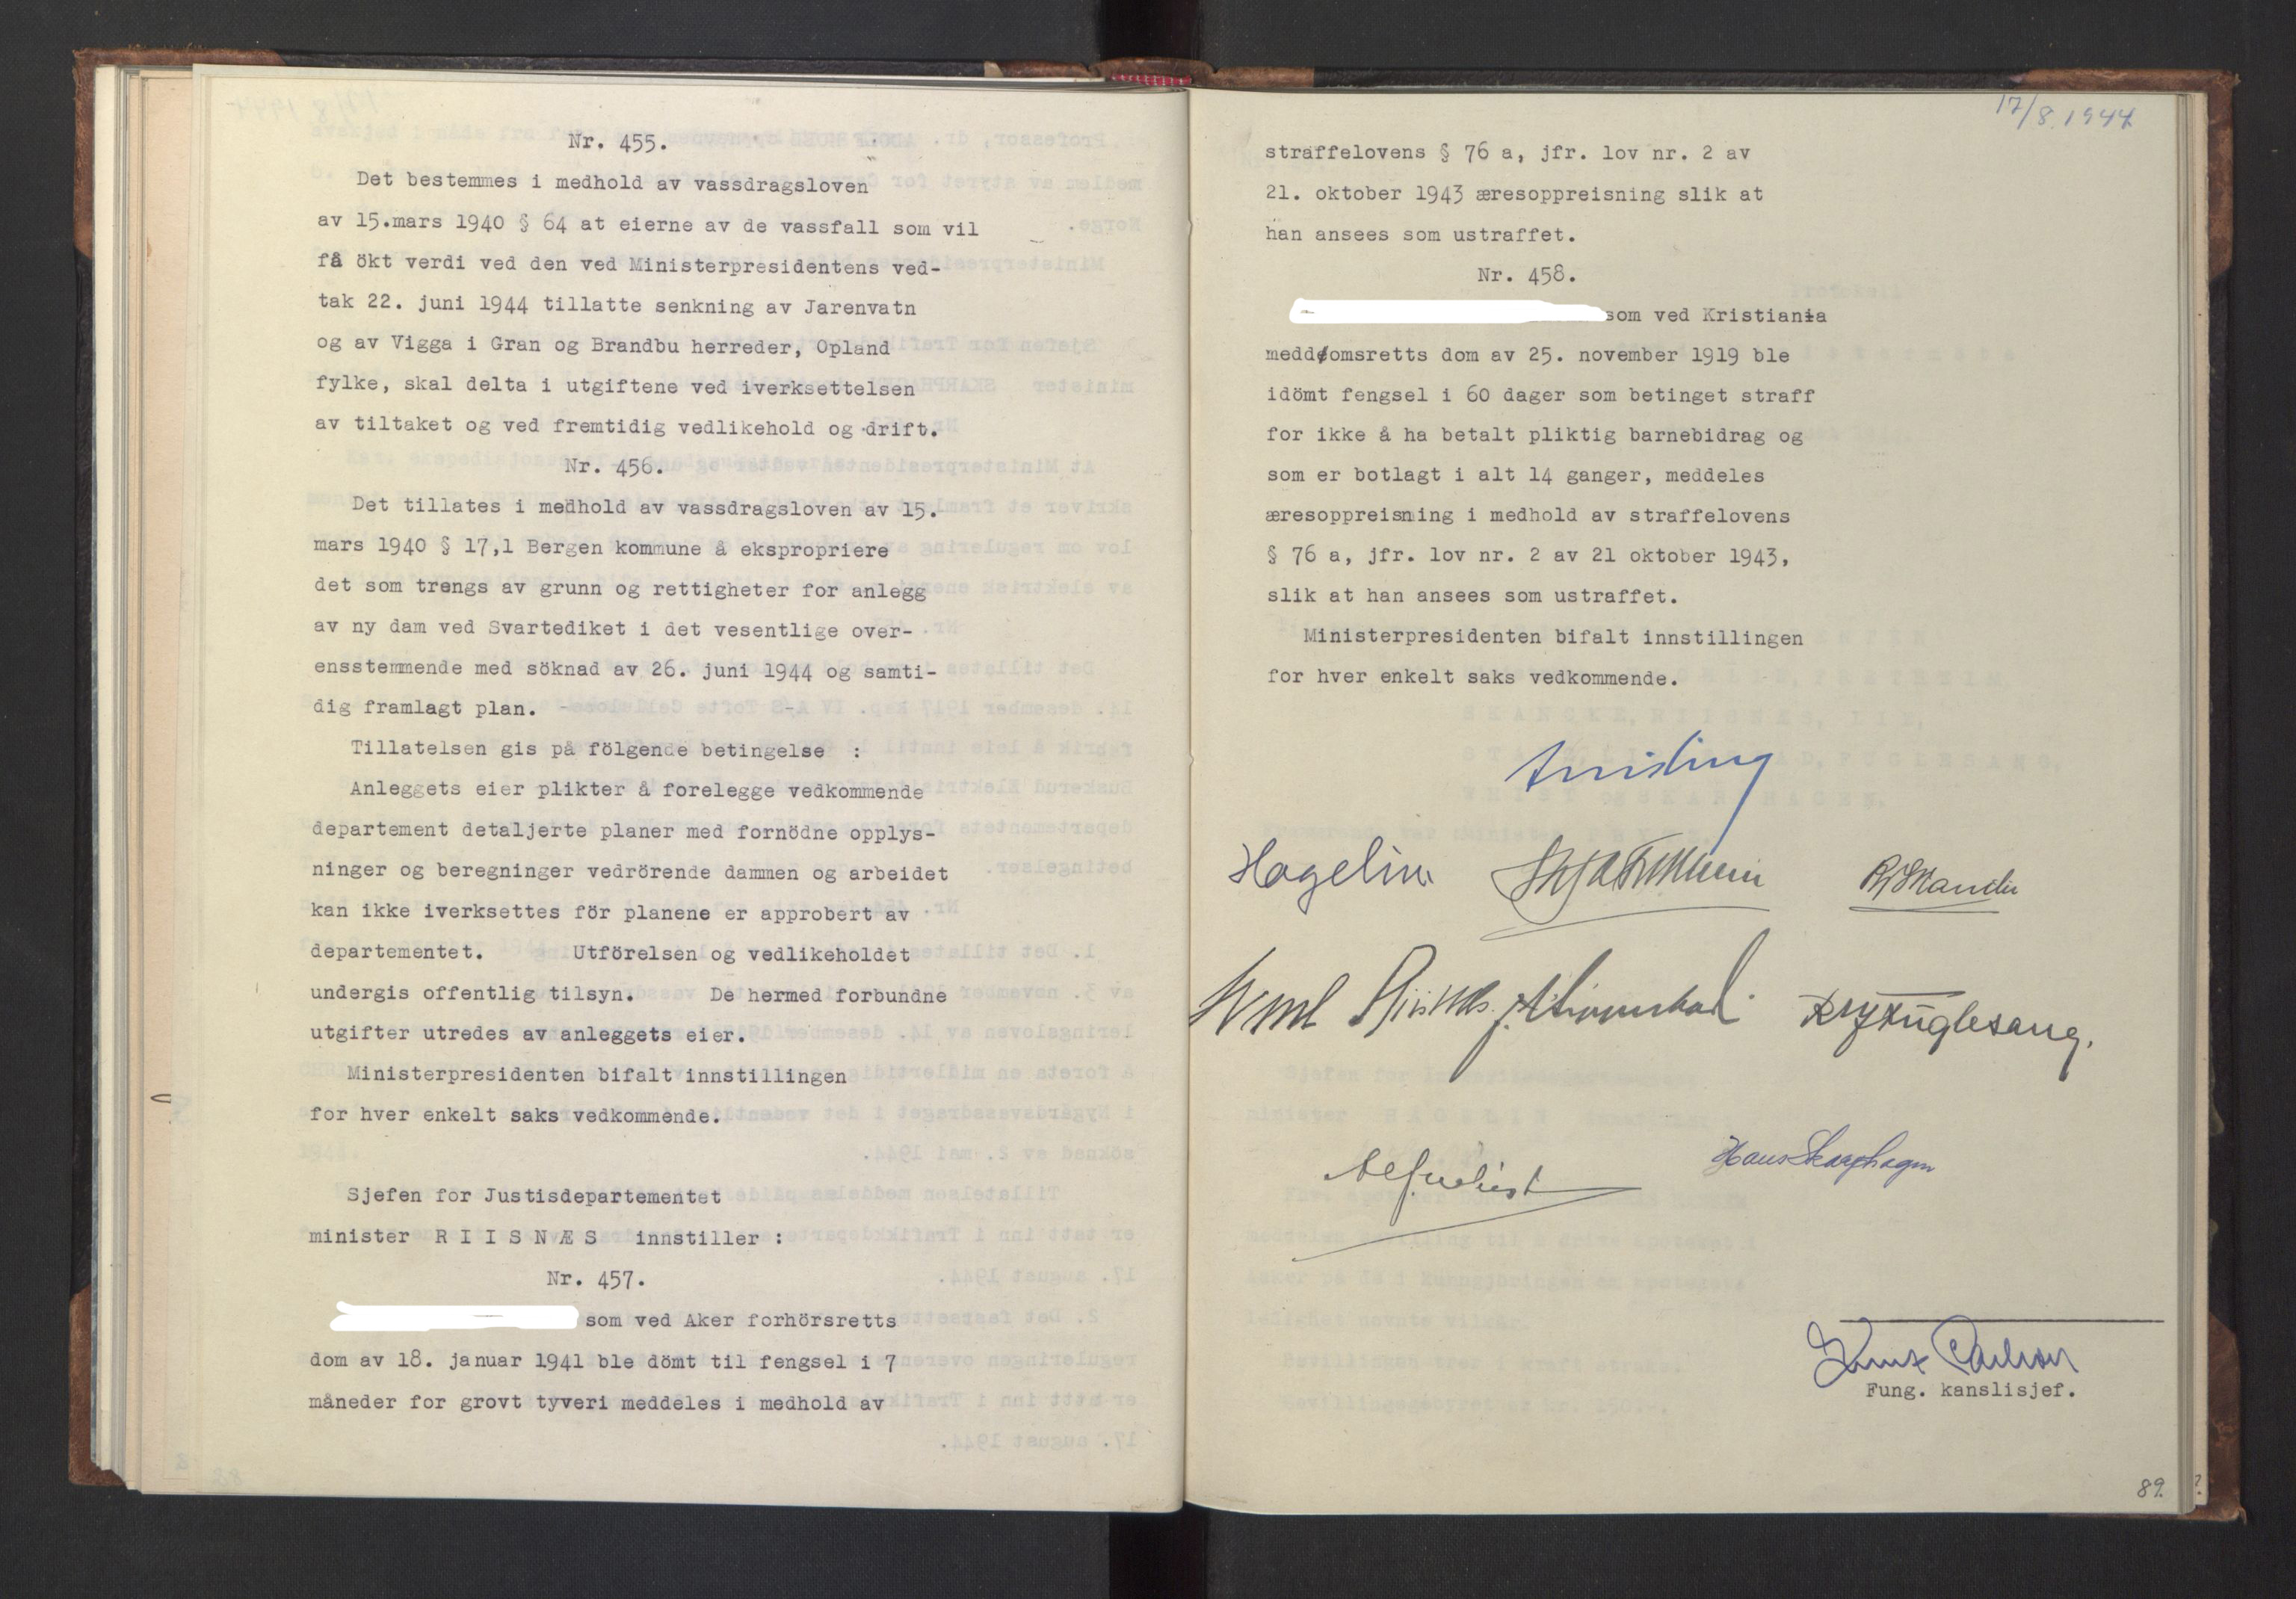 Nr. 455.
Det bestemmes i medhold av vassdragsloven
av 15.mars 1940 § 64 at eierne av de vassfall som vil
få ökt verdi ved den ved Ministerpresidentens ved-
tak 22. juni 1944 tillatte senkning av Jarenvatn
og av Vigga i Gran og Brandbu herreder, Opland
fylke, skal delta i utgiftene ved iverksettelsen
av tiltaket og ved fremtidig vedlikehold og drift.
Nr. 456.
Det tillates i medhold av vassdragsloven av 15.
mars 1940 § 17,1 Bergen kommune å ekspropriere
det som trengs av grunn og rettigheter for anlegg
av ny dam ved Svartediket i det vesentlige over-
ensstemmende med söknad av 26. juni 1944 og samti-
dig framlagt plan.
Tillatelsen gis på fölgende betingelse :
Anleggets eier plikter å forelegge vedkommende
departement detaljerte planer med fornödne opplys-
ninger og beregninger vedrörende dammen og arbeidet
kan ikke iverksettes för planene er approbert av
departementet. Utförelsen og vedlikeholdet
undergis offentlig tilsyn. De hermed forbundne
utgifter utredes av anleggets eier.
Ministerpresidenten bifalt innstillingen
for hver enkelt saks vedkommende.
Sjefen for Justisdepartementet
minister R I I S N Æ S innstiller :
Nr. 457.
som ved Aker forhörsretts
dom av 18. januar 1941 ble dömt til fengsel i 7
måneder for grovt tyveri meddeles i medhold av
17/8.1944
straffelovens § 76 a, jfr. lov nr. 2 av
21. oktober 1943 æresoppreisning slik at
han ansees som ustraffet.
Nr. 458.
som ved Kristiania
meddomsretts dom av 25. november 1919 ble
idömt fengsel i 60 dager som betinget straff
for ikke å ha betalt pliktig barnebidrag og
som er botlagt i alt 14 ganger, meddeles
æresoppreisning i medhold av straffelovens
§ 76 a, jfr. lov nr. 2 av 21 oktober 1943,
slik at han ansees som ustraffet.
Ministerpresidenten bifalt innstillingen
for hver enkelt saks vedkommende.
Quisling
Hagelin RSkancke
Riisnæs Fuglesang.
Hans Skarphagen
Fung. kanslisjef.
89.